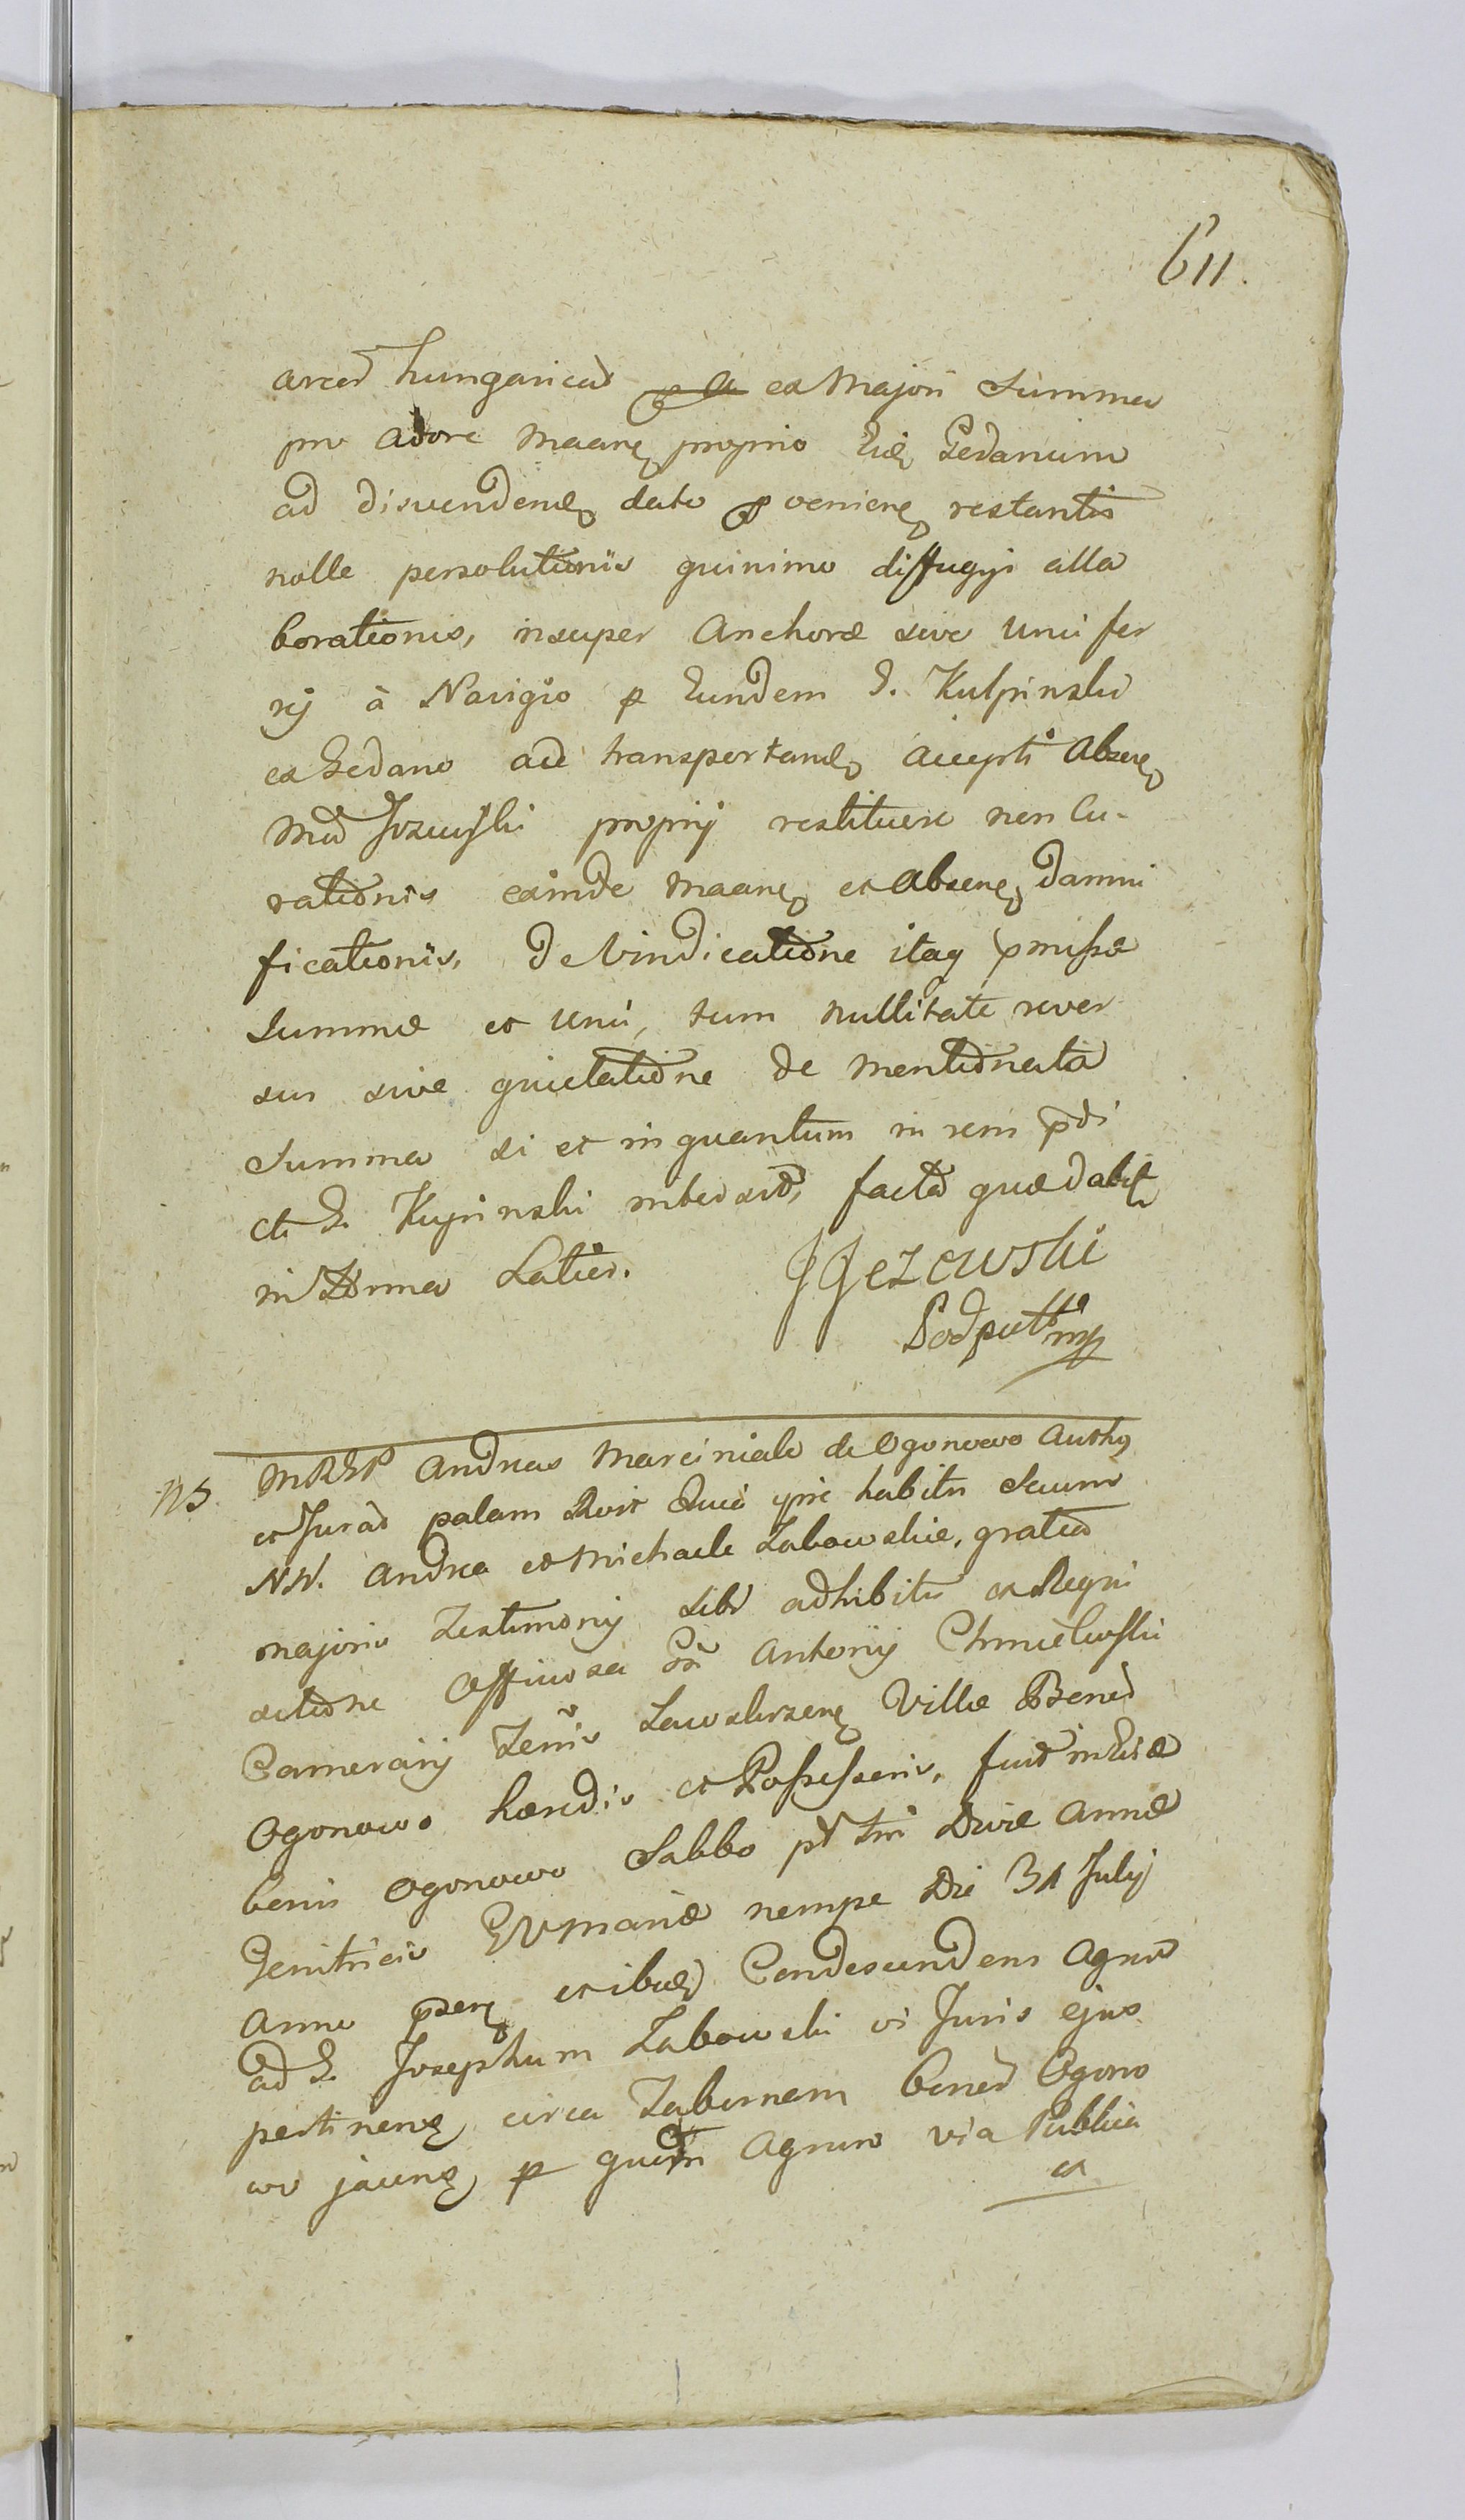 611.
arced hungarical ex Majori Summa
pro adore Maanę proprio Eidę Gedanum
ad disvendendę dato venienę restantis
nolle persolutionis quinimo diffugij alla
borationis, insuper Anchoræ sive Unci fer
rij à Navigio p Eundem G. Kulpinski
ex Gedano ad transportandę accepti Absenę
Md proprij restituere non Cu-
rationis exinde Maanę et Absenę damni
ficationis, De Vindicatione itaq pmissæ
Summæ et Unci, tum nullitate rever
sus sive quietatione de mentionata
Summa si et inquantum in rem pdi
cti G. Kupinski facta quæ dabit
in Forma Latiori.
JJezewski
Podpustki mp
NS. MREP Andreas Marciniak de Ogonowo Auth
et Jurad palam Quia ipse habitis Secum
NN. Andrea et Michaele Labowskie, gratia
majoris Testimonij Sibi adhibitis ex Requi
sitione Officiosa Gsi Antonij Chmielewski
Camerarij Terris Villæ Bonor
Ogonowo hæredis et Possessoris, fuit in Villa
bonis Ogonowo Sabbo pt fm Divæ Annæ
Genitricis BVMariæ nempe Die 31 Julij
Anno psenę et ibidę Condescendens Agrum
ad G. Josephum Labowski vi Juris ejus
pertinenę circa Tabernam bonor Ogono
wo jacenę p quem Agrum via Publica
et